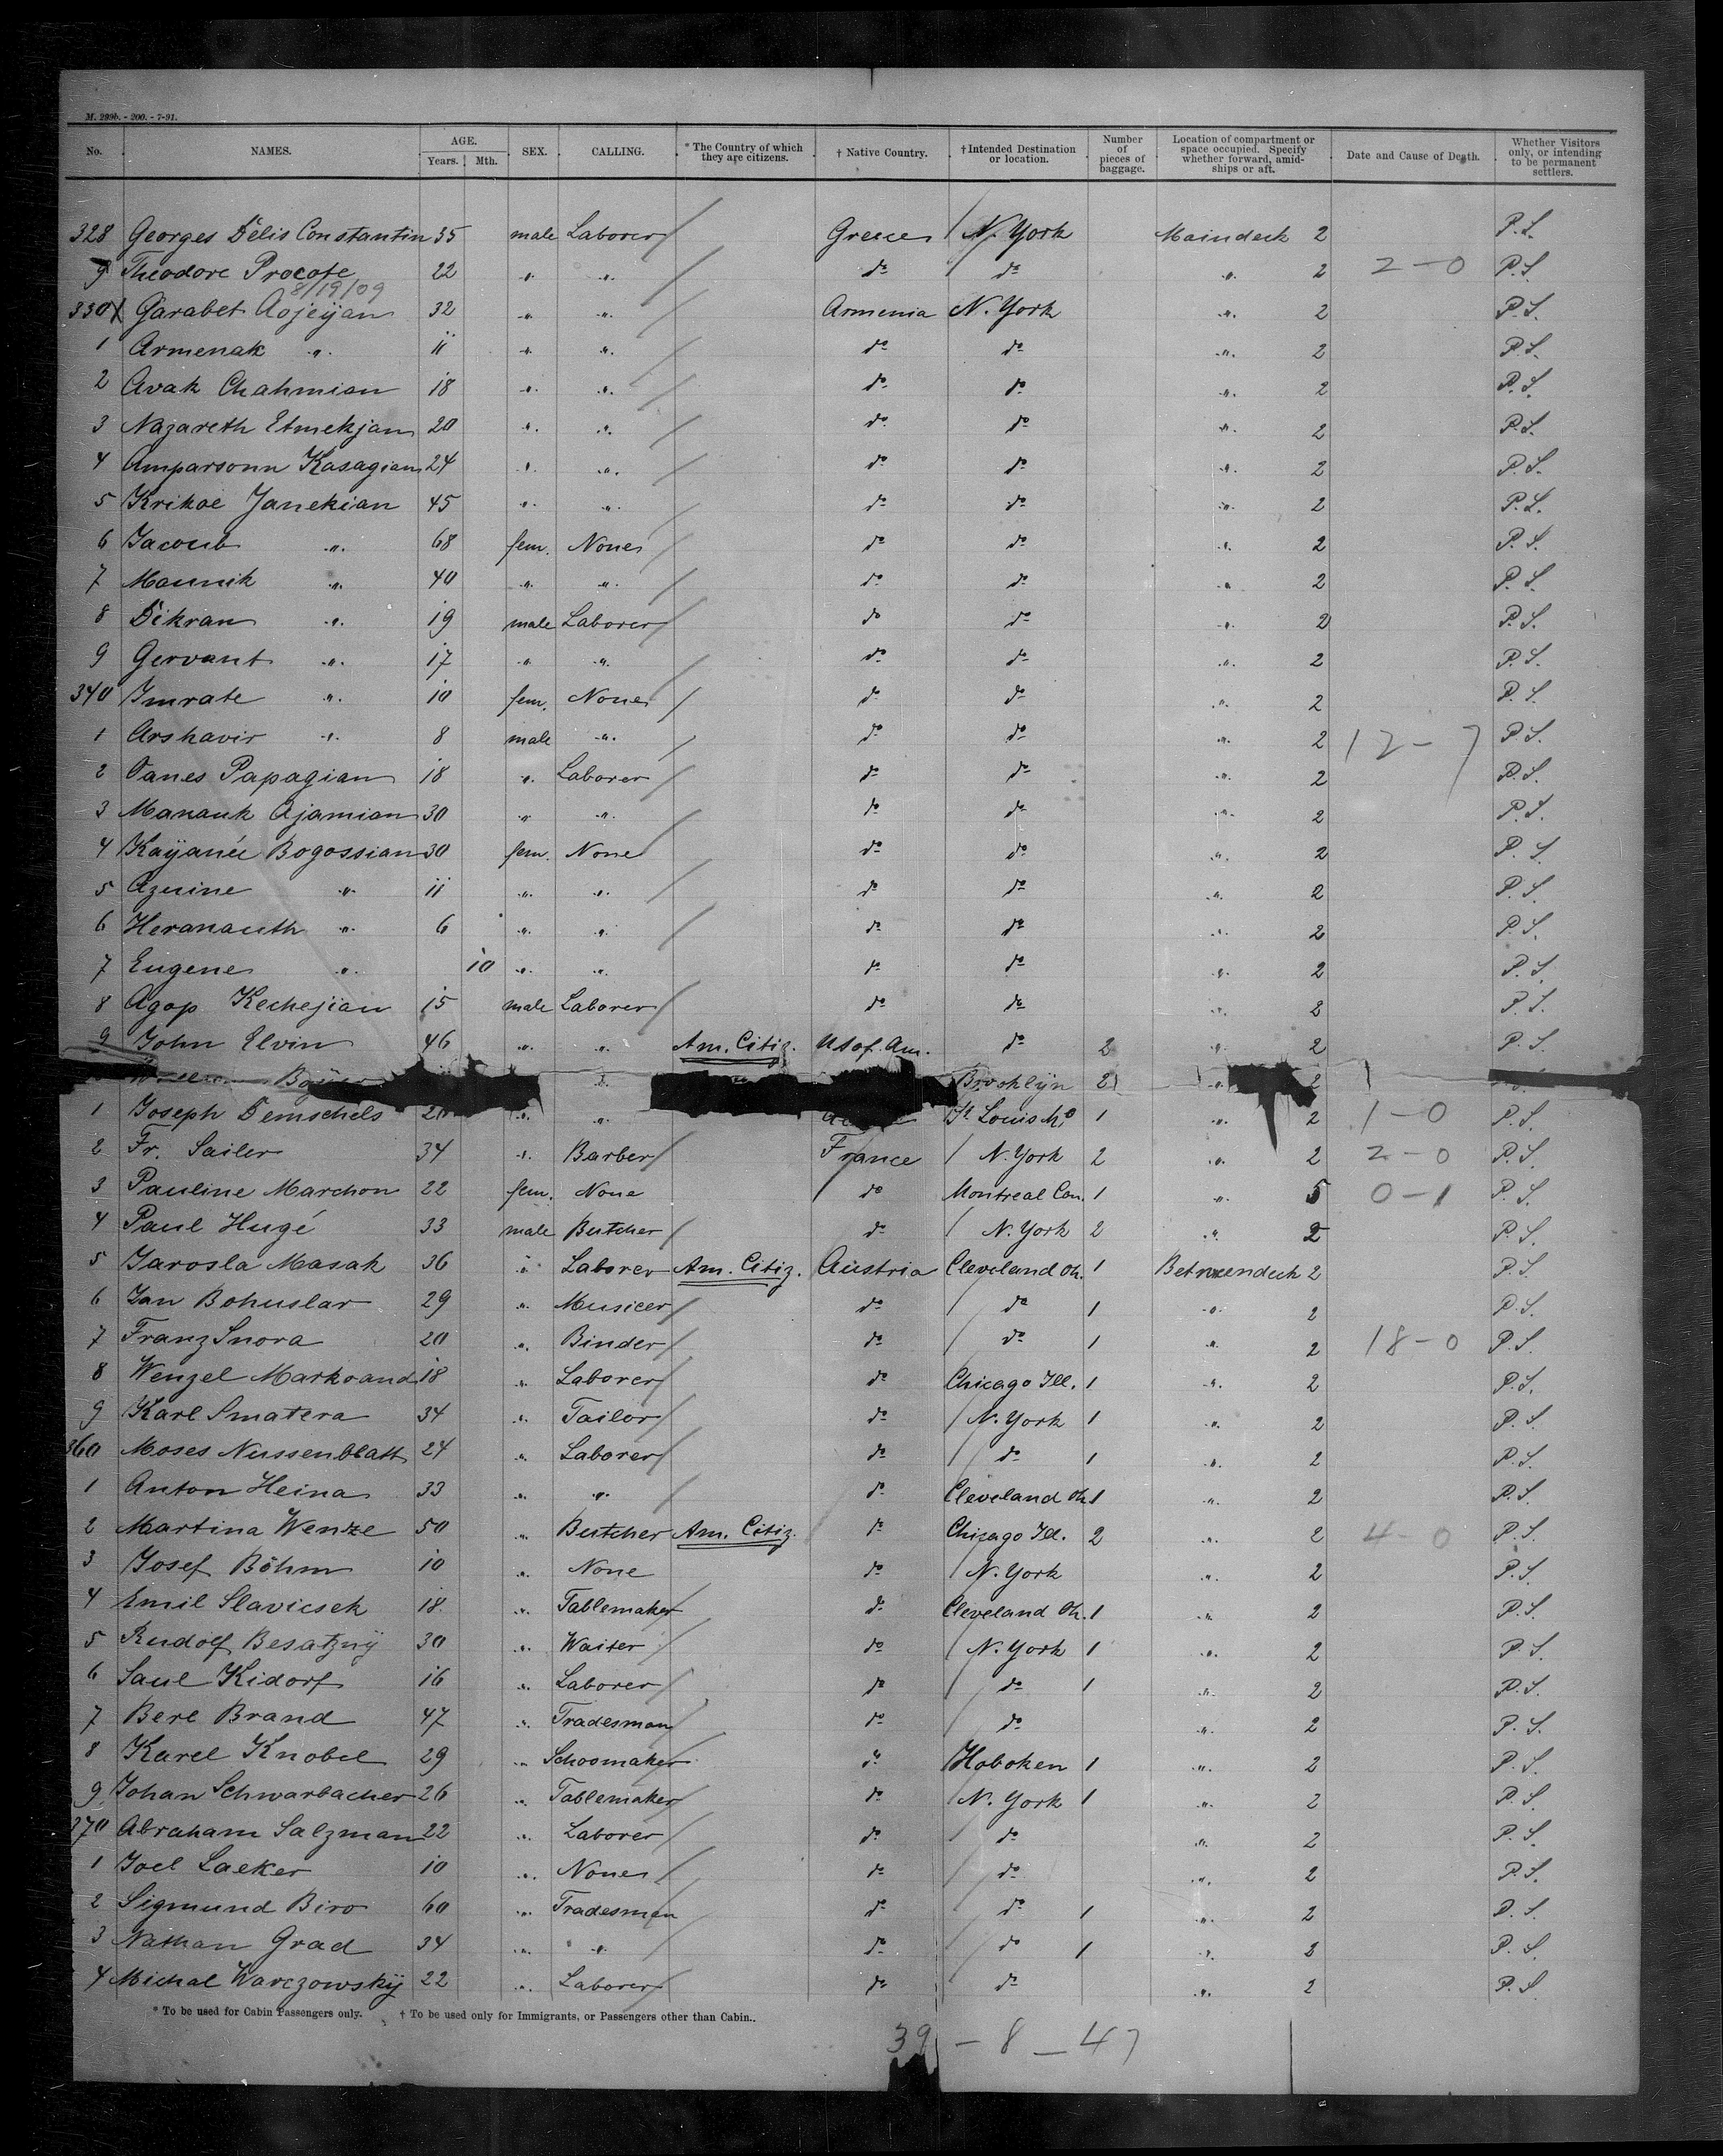 M. 299b. - 200. - 7-91.
No. NAMES. AGE. Years. Mth. SEX. CALLING. * The Country of which they are citizens. † Native Country. † Intended Destination or location. Number of pieces of baggage. Location of compartment or space occupied. Specify whether forward, amidships or aft. Date and Cause of Death. Whether Visitors only, or intending to be permanent settlers.
328 Georges Delis Constantin 35 male Laborer Greece N. York Maindeck 2 P.S.
9 Theodore Procote 22 " " do do " 2 2-0 P.S.
8/19/09
330 X Garabet Aojeijan 32 " " Armenia N. York " 2 P.S.
1 Armenak " 11 " " do do " 2 P.S.
2 Avak Chahmian 18 " " do do " 2 P.S.
3 Nazareth Etmekjan 20 " " do do " 2 P.S.
4 Amparsonn Kasagian 24 " " do do " 2 P.S.
5 Krikoe Janekian 45 " " do do " 2 P.S.
6 Jacoub " 68 fem. None do do " 2 P.S.
7 Maunik " 40 " " do do " 2 P.S.
8 Dikran " 19 male Laborer do do " 2 P.S.
9 Gervant " 17 " " do do " 2 P.S.
340 Imrate " 10 fem. None do do " 2 P.S.
1 Arshavir " 8 male " do do " 2 12-7 P.S.
2 Oanes Papagian 18 " Laborer do do " 2 P.S.
3 Manauk Ajamian 30 " " do do " 2 P.S.
4 Kayanée Bogossian 30 fem. None do do " 2 P.S.
5 Azuine " 11 " " do do " 2 P.S.
6 Heranauth " 6 " " do do " 2 P.S.
7 Eugene " 10 " " do do " 2 P.S.
8 Agop Kechejian 15 male Laborer do do " 2 P.S.
9 John Elvin 46 " " Am. Citiz. U S of Am. do 2 " 2 P.S.
Brooklyn 2 " 2
1 Joseph Demschels " " St Louis Mo 1 " 2 1-0 P.S.
2 Fr. Sailer 34 " Barber France N. York 2 " 2 2-0 P.S.
3 Pauline Marchon 22 fem. None do Montreal Can. 1 " 5 0-1 P.S.
4 Paul Hugé 33 male Butcher do N. York 2 " 2 P.S.
5 Jarosla Masak 36 " Laborer Am. Citiz. Austria Cleveland Oh. 1 Betweendeck 2 P.S.
6 Jan Bohuslar 29 " Musicer do do 1 " 2 P.S.
7 Franz Snora 20 " Binder do do 1 " 2 18-0 P.S.
8 Wenzel Markoand 18 " Laborer do Chicago Ill. 1 " 2 P.S.
9 Karl Smatera 34 " Tailor do N. York 1 " 2 P.S.
360 Moses Nussenblatt 24 " Laborer do do 1 " 2 P.S.
1 Anton Heina 33 " " do Cleveland Oh. 1 " 2 P.S.
2 Martina Wenze 50 " Butcher Am. Citiz. do Chicago Ill. 2 " 2 4-0 P.S.
3 Josef Böhm 10 " None do N. York " 2 P.S.
4 Emil Slavicsek 18 " Tablemaker do Cleveland Oh. 1 " 2 P.S.
5 Rudolf Besatzny 30 " Waiter do N. York 1 " 2 P.S.
6 Saul Kidorf 16 " Laborer do do 1 " 2 P.S.
7 Berl Brand 47 " Tradesman do do " 2 P.S.
8 Karel Knobel 29 " Schoomaker do Hoboken 1 " 2 P.S.
9 Johan Schwarbacher 26 " Tablemaker do N. York 1 " 2 P.S.
370 Abraham Salzman 22 " Laborer do do " 2 P.S.
1 Joel Laeker 10 " None do do " 2 P.S.
2 Sigmund Biro 60 " Tradesman do do 1 " 2 P.S.
3 Nathan Grad 34 " " do do 1 " 2 P.S.
4 Michal Warczowskij 22 " Laborer do do " 2 P.S.
* To be used for Cabin Passengers only. † To be used only for Immigrants, or Passengers other than Cabin..
39 - 8 - 47